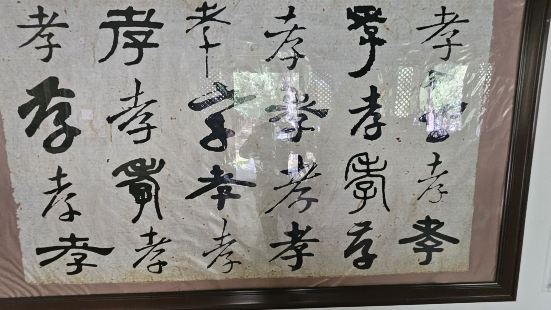 孝孝孝孝孝孝
孝孝孝孝孝孝
孝孝孝孝孝孝
孝孝孝孝孝孝